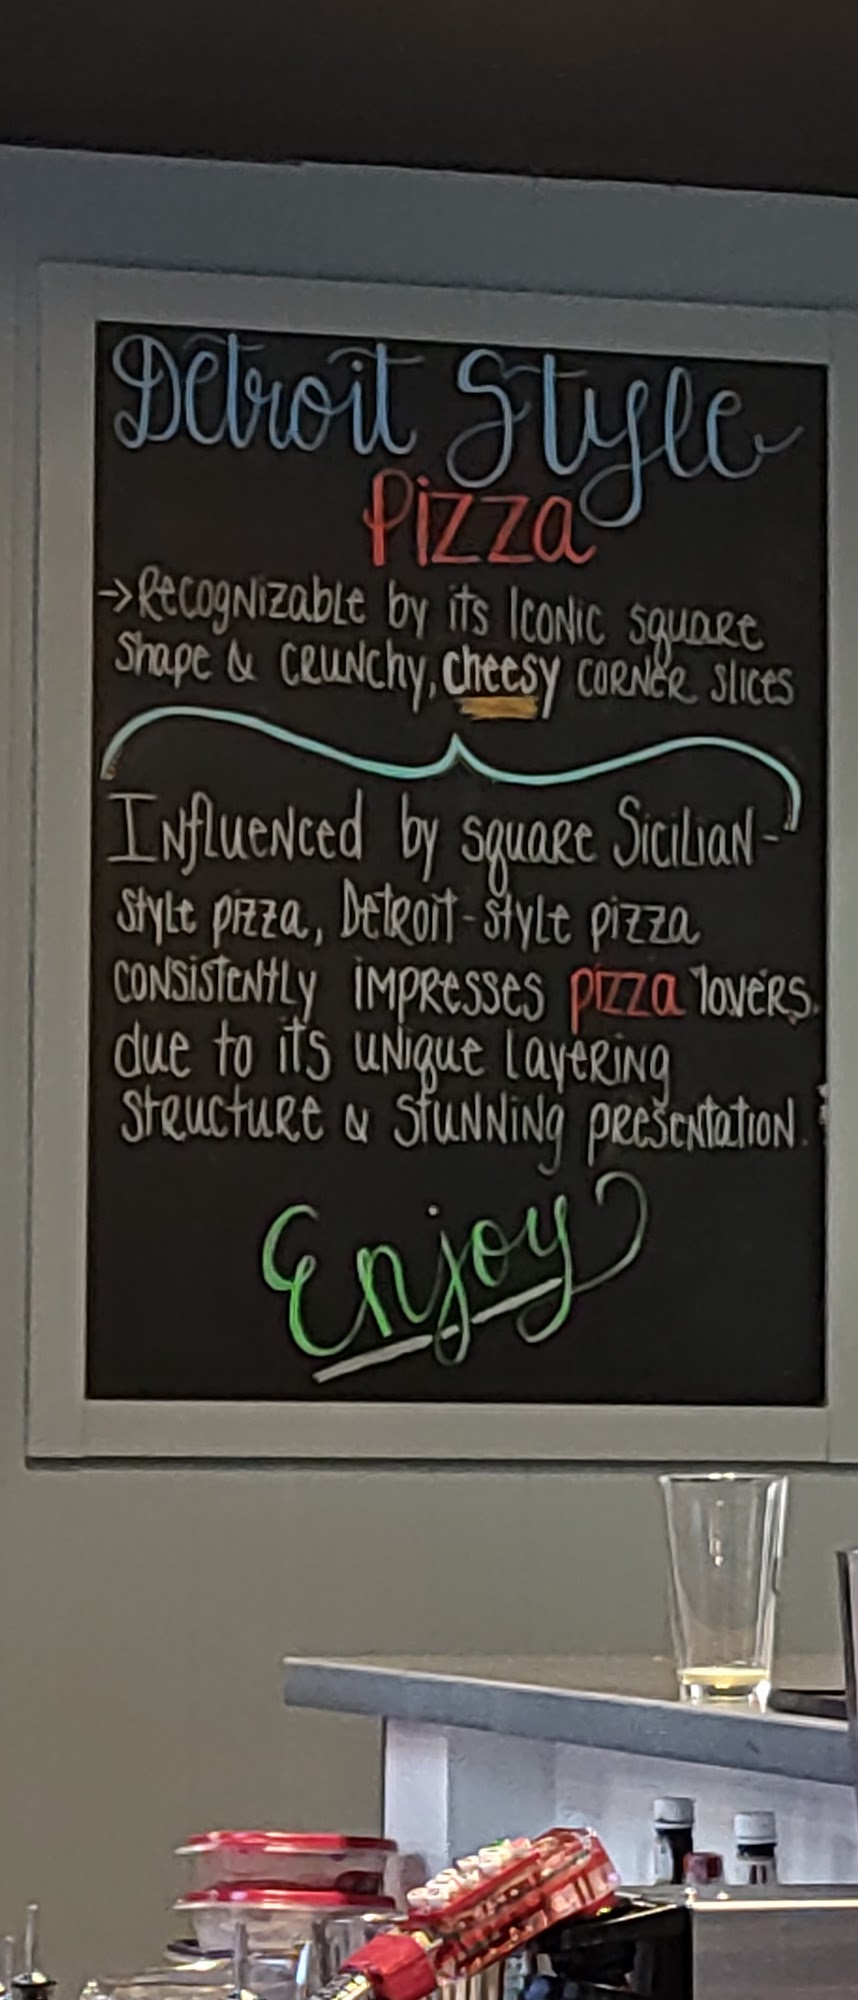 Detroit Style
Pizza
→Recognizable by its Iconic square
shape & crunchy, cheesy corner slices
Influenced by square Sicilian-
style pizza, Detroit-style pizza
consistently impresses pizza lovers.
due to its unique layering
structure & stunning presentation.
Enjoy